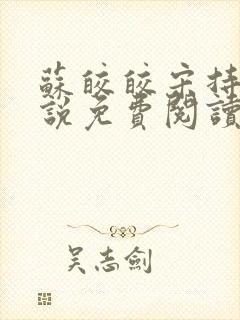 蘇皎皎宋持
說免費閱讀
吴志劍